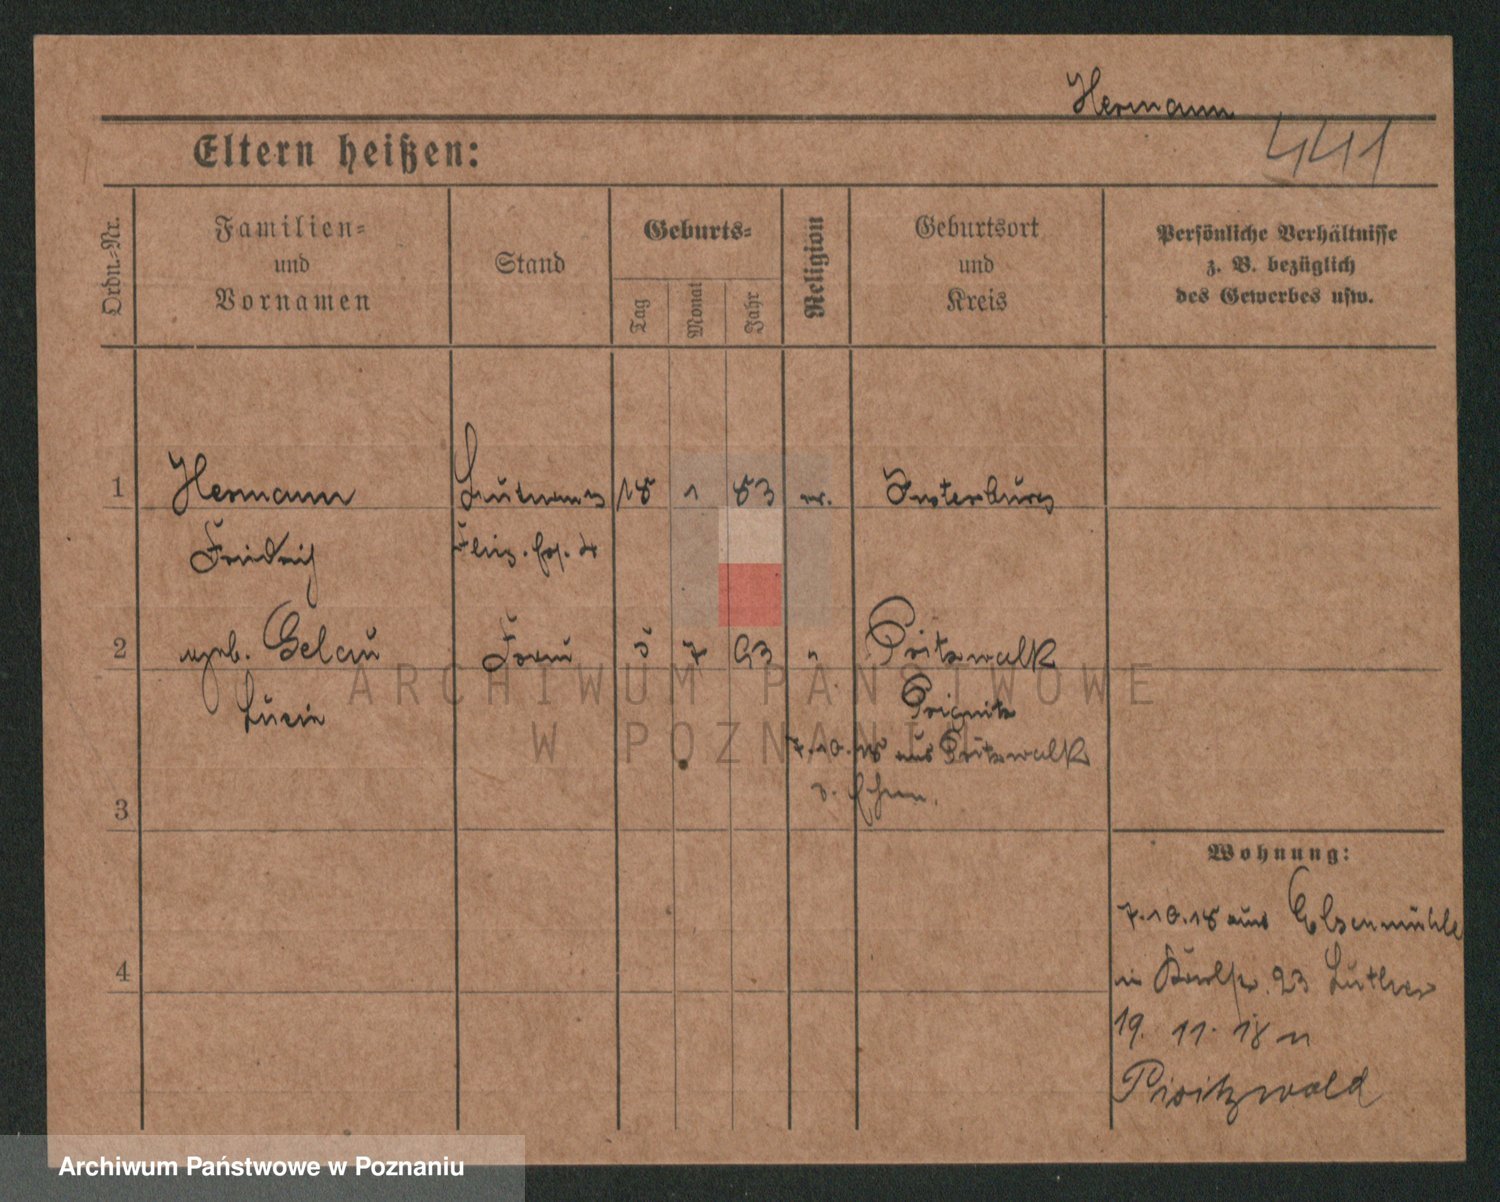 Hermann
441
Eltern heißen:
Ordn.-Nr.
Familien-
und
Vornamen
Stand
Geburts-
Tag
Monat
Jahr
Religion
Geburtsort
und
Kreis
Persönliche Verhältnisse
z. B. bezüglich
des Gewerbes usw.
1 Hermann Leutnant 18 1 83 ev. Insterburg
Friedrich
2 geb. Gelau Frau 5 7 93 " Pritzwalk
Lucie Prignitz
7.10.18 aus Pritzwalk
z. Ehem.
3
Wohnung:
7.10.18 aus Elsenmühle
in 23 Luther
19. 11. 18 n
Prizitzwald
4
ARCHIWUM PAŃSTWOWE
W POZNANIU
Archiwum Państwowe w Poznaniu